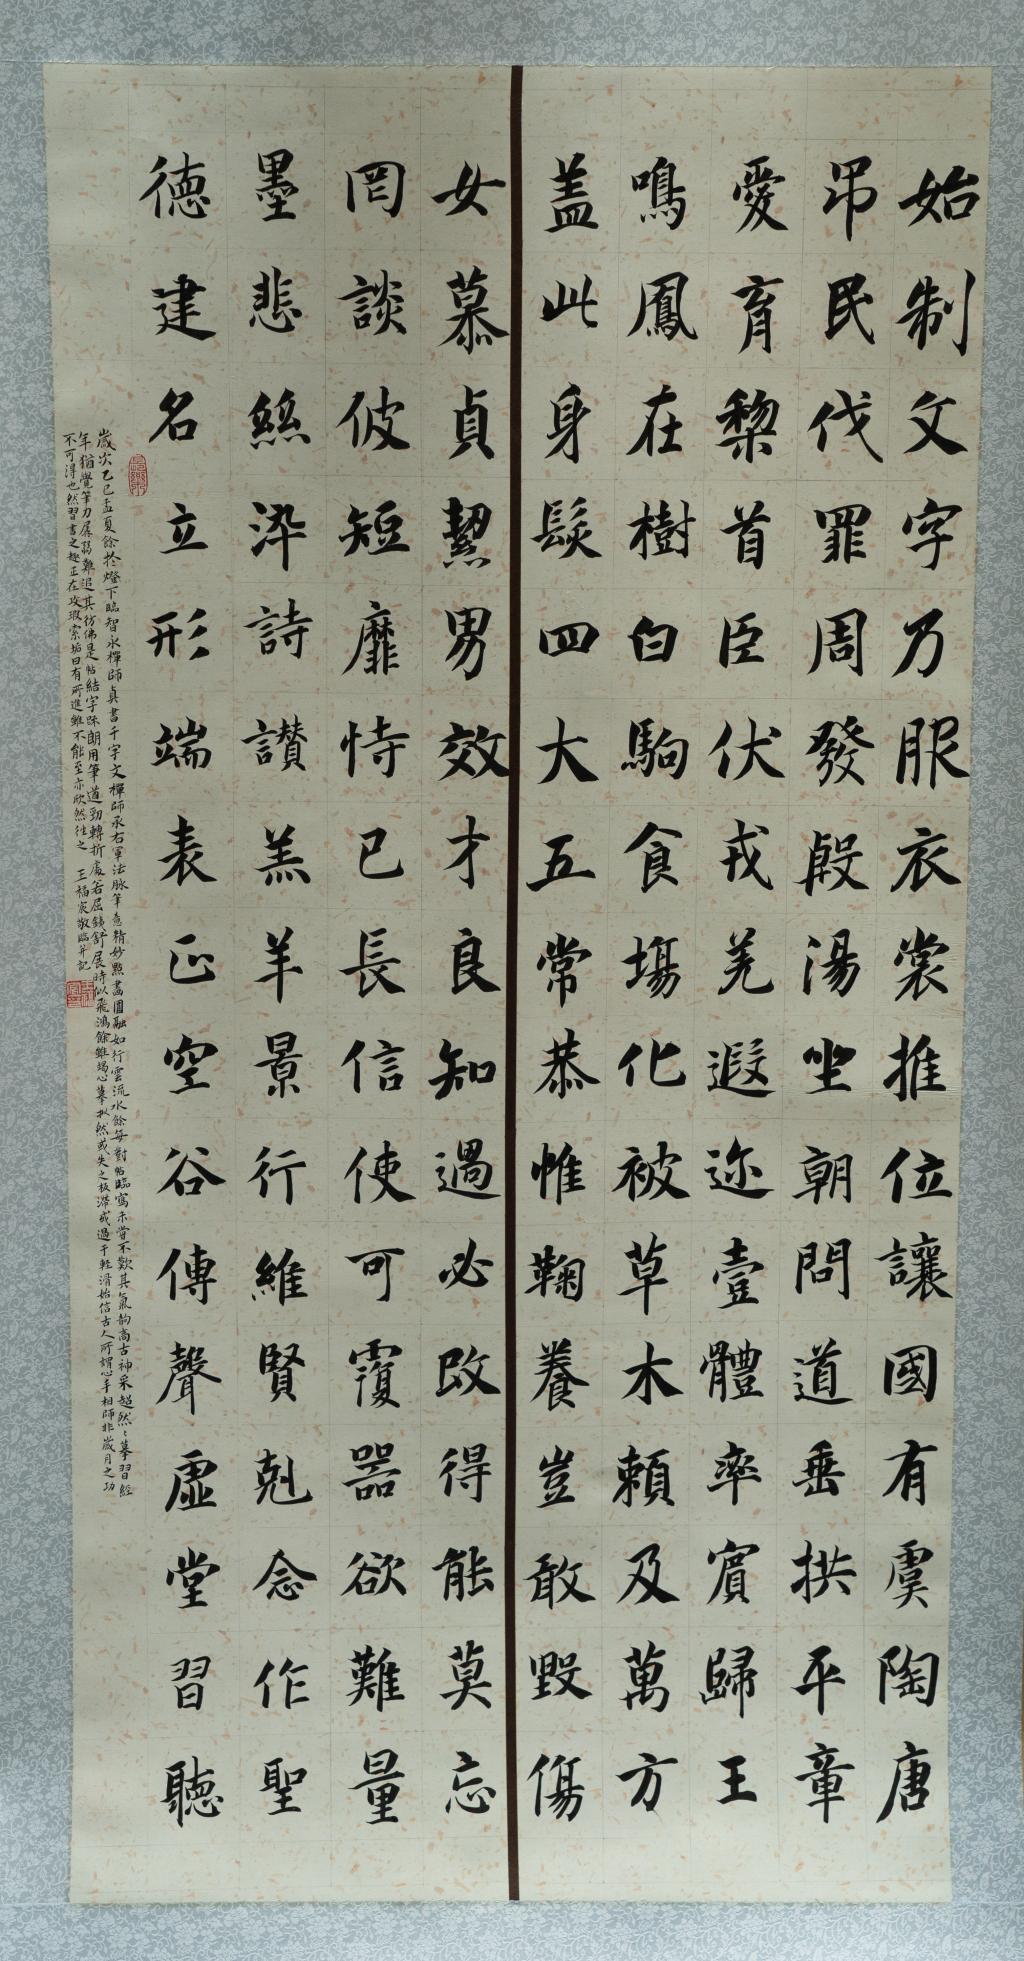 始制文字乃服衣裳推位讓國有虞陶唐
吊民伐罪周發殷湯坐朝問道垂拱平章
愛育黎首臣伏戎羌遐迩壹體率賓歸王
鳴鳳在樹白駒食場化被草木賴及萬方
盖此身髮四大五常恭惟鞠養豈敢毀傷
女慕貞絜男效才良知過必改得能莫忘
罔談彼短靡恃己長信使可覆器欲難量
墨悲絲染詩讃羔羊景行維賢剋念作聖
德建名立形端表正空谷傳聲虛堂習聽
歲次乙巳孟夏餘於燈下臨智永禪師真書千字文禪師承右軍法脉筆意精妙點畫圓融如行雲流水餘每對帖臨寫未嘗不歎其氣韵高古神采超然々摹習經
年猶覺筆力孱弱難追其彷佛是帖結字疎朗用筆遒勁轉折處若屈鐵舒展時似飛鴻餘雖竭心摹拟然或失之板滯或過于輕滑始信古人所謂心手相師非歲月之功
不可得也然習書之趣正在攻瑕索垢日有所進雖不能至亦欣然往之 王福宸敬臨并記